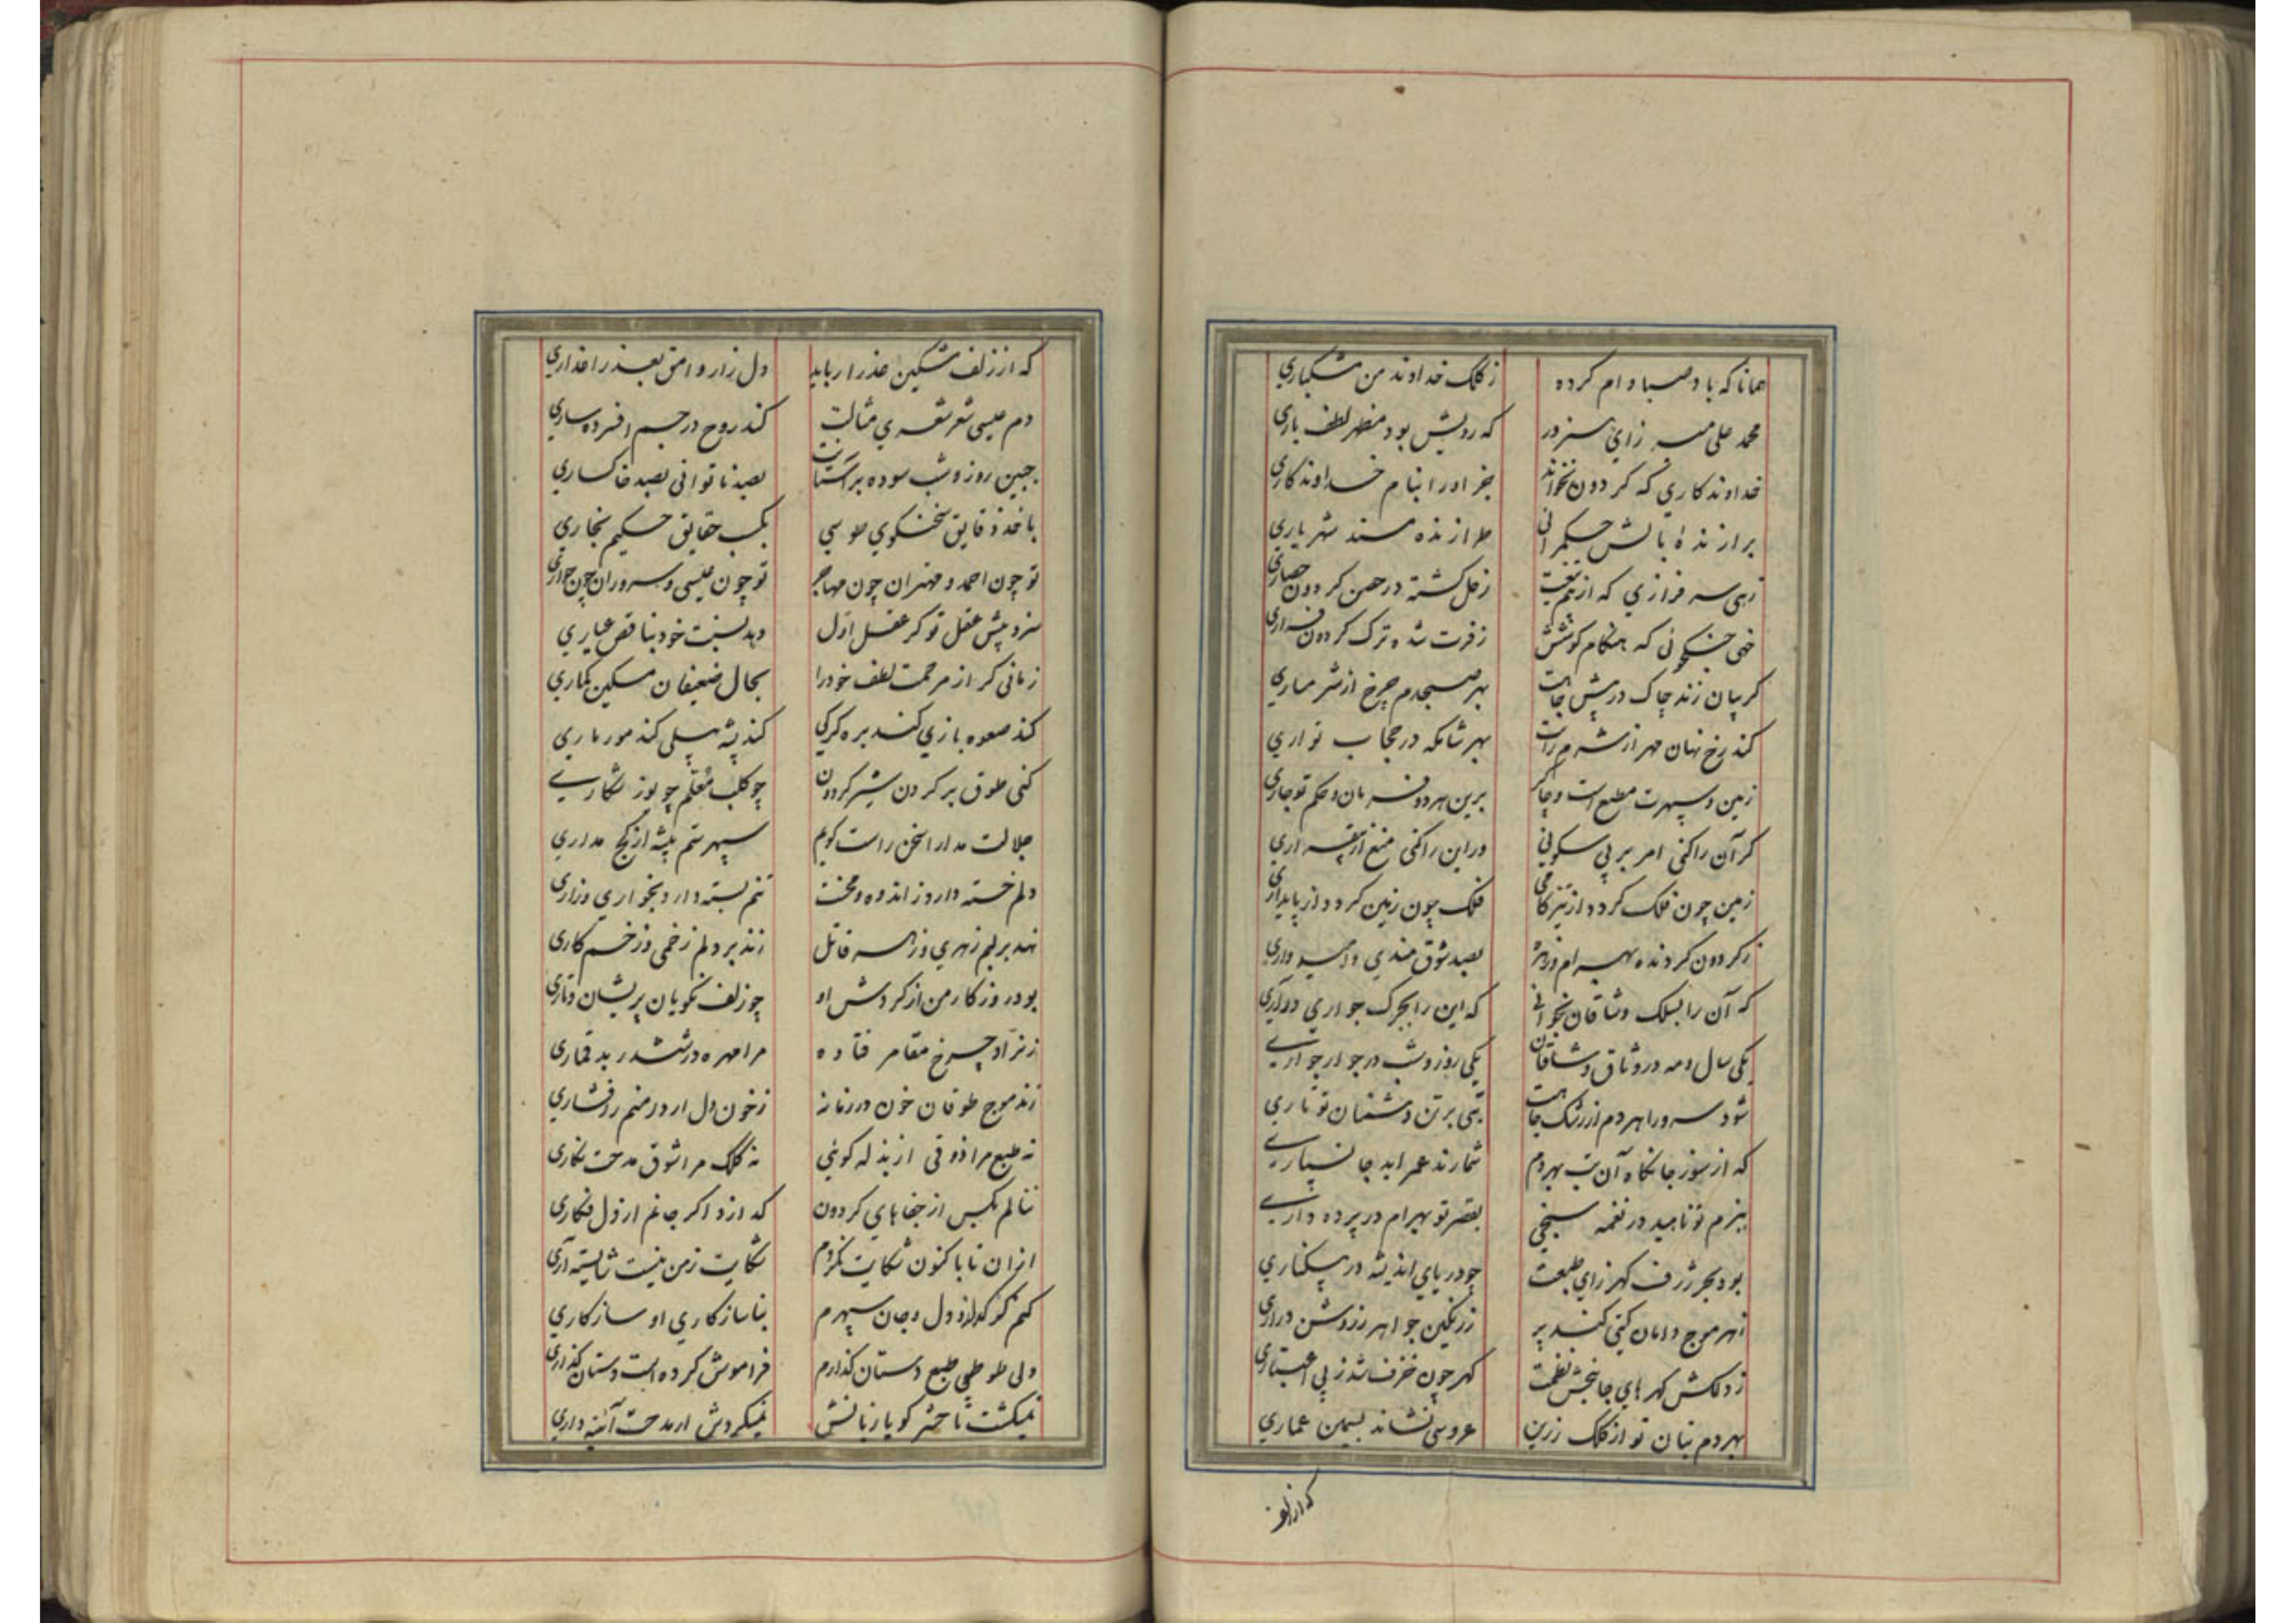 همانا که باد صبا وام کرده ز کلک خداوند من مشکباری
محمد علی میرزای هنرور که رویش بود مظهر لطف باری
خداوندکاری که کردون نخواند بجز او را بنام خداوندکاری
برازنده بالش حکمرانی طرازنده مسند شهریاری
زهی سرفرازی که از بیم تیغت زحل کشته در حصن کردون حصاری
خهی جنکجوئی که هنکام کوشش ز فرت شده ترک کردون فراری
کریبان زند چاک در پیش جاهت بهر صبحدم چرخ از شرمساری
کند رخ نهان مهر از شرم رایت بهر شامکه در حجاب تواری
زمین و سپهرت مطیع است و چاکر برین هر دو فرمان و حکم تو جاری
کر آن را کنی امر بر بی سکونی ور این را کنی منع از بیقراری
زمین چون فلک کردد از تیزکامی فلک چون زمین کردد از پایداری
ز کردون کردنده بهرام و زهره بصد شوق‌مندی و امیدواری
که آن را بسلک وشاقان بخوانی که این را بجرک جواری درآری
یکی سال و مه در وثاق وشاقان یکی روز و شب در جوار جواری
شود سرورا هر دم از رشک جاهت تبی بر تن دشمنان تو تاری
که از سوز جانکاه آن تب بهر دم شمارند عمر ابد جانسپاری
ببزم تو ناهید در نغمه سنجی بقصر تو بهرام در پرده داری
بود بحر ژرف کهرزای طبعت چو دریای اندیشه در بیکناری
زهر موج دامان کیتی کند پر ز رنکین جواهر ز روشن دراری
ز دلکش کهرهای جانبخش نظمت کهر چون خزف شد ز بی اعتباری
بهر دم بنان تو از کلک زرین عروسی نشاند بسیمن عماری
که از زلف
که از زلف مشکین عذرا رباید دل زار وامق بعذرا عذاری
دم عیسی شعر شعری مثالت کند روح در جسم افسرده ساری
جبین روز و شب سوده بر آستانت بصد ناتوانی بصد خاکساری
باخذ دقایق سخنکوی طوسی بکسب حقایق حکیم بخاری
تو چون احمد و مهتران چون مهاجر تو چون عیسی و سروران چون حواری
سزد پیش عقل تو کر عقل اول دهد نسبت خود بناقص عیاری
زمانی کر از مرحمت لطف خود را بحال ضعیفان مسکین کماری
کند صعوه بازی کند بره کرکی کند پشه پیلی کند مور ماری
کنی طوق بر کردن شیر کردون چو کلب معلم چو یوز شکاری
جلالت مدارا سخن راست کویم سپهر ستم پیشه از کج مداری
دلم خسته دارد ز اندوه و محنت تنم بسته دارد بخواری و زاری
نهد بر لبم زهری و زهر قاتل زند بر دلم زخمی و زخم کاری
بود روزکار من از کردش او چو زلف نکویان پریشان و تاری
ز نراد چرخ مقامر فتاده مرا مهره در ششدر بد قماری
زند موج طوفان خون در زمانه ز خون دل ار در منم رفشاری
نه طبع مرا ذوقی از بذله کوئی نه کلک مرا شوق مدحت نکاری
ننالم بکس از جفاهای کردون کدازد اکر جانم از دل فکاری
ازان تا باکنون شکایت نکردم شکایت ز من نیست شایسته آری
کنم کز کدازد دل و جان سپهرم بناسازکاری او سازکاری
ولی طوطی طبع دستان کذارم فراموش کرده است دستان کذاری
نمیکشت تا حشر کویا زبانش نمیکردش ار مدحت آئینه داری